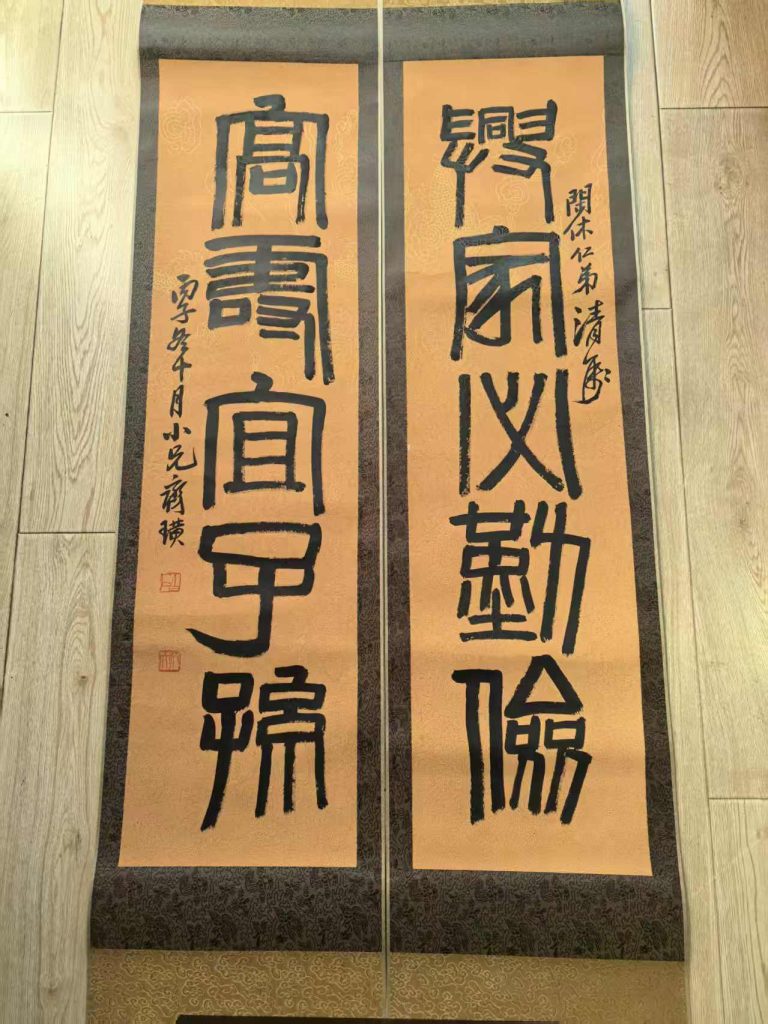 興家必勤儉
閒休仁弟清屬
高壽宜子孫
丙子冬十月小兄齊璜